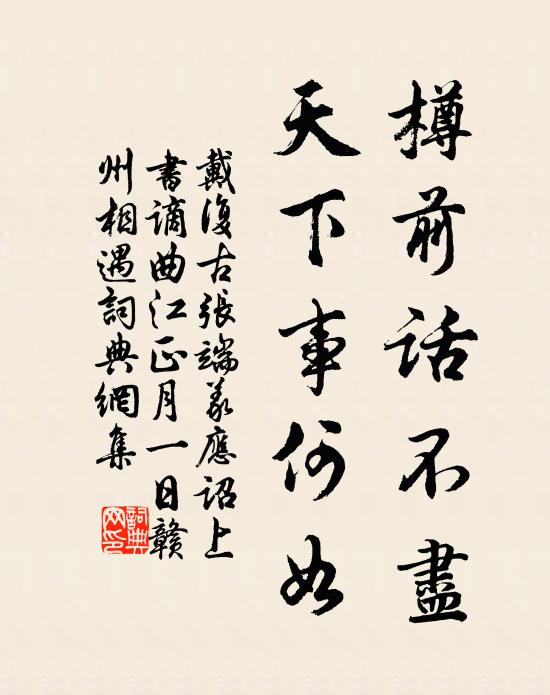 樽前話不盡
天下事何如
戴復古張端義應詔上
書謫曲江正月一日贛
州相遇詞典網集
詞典
网印